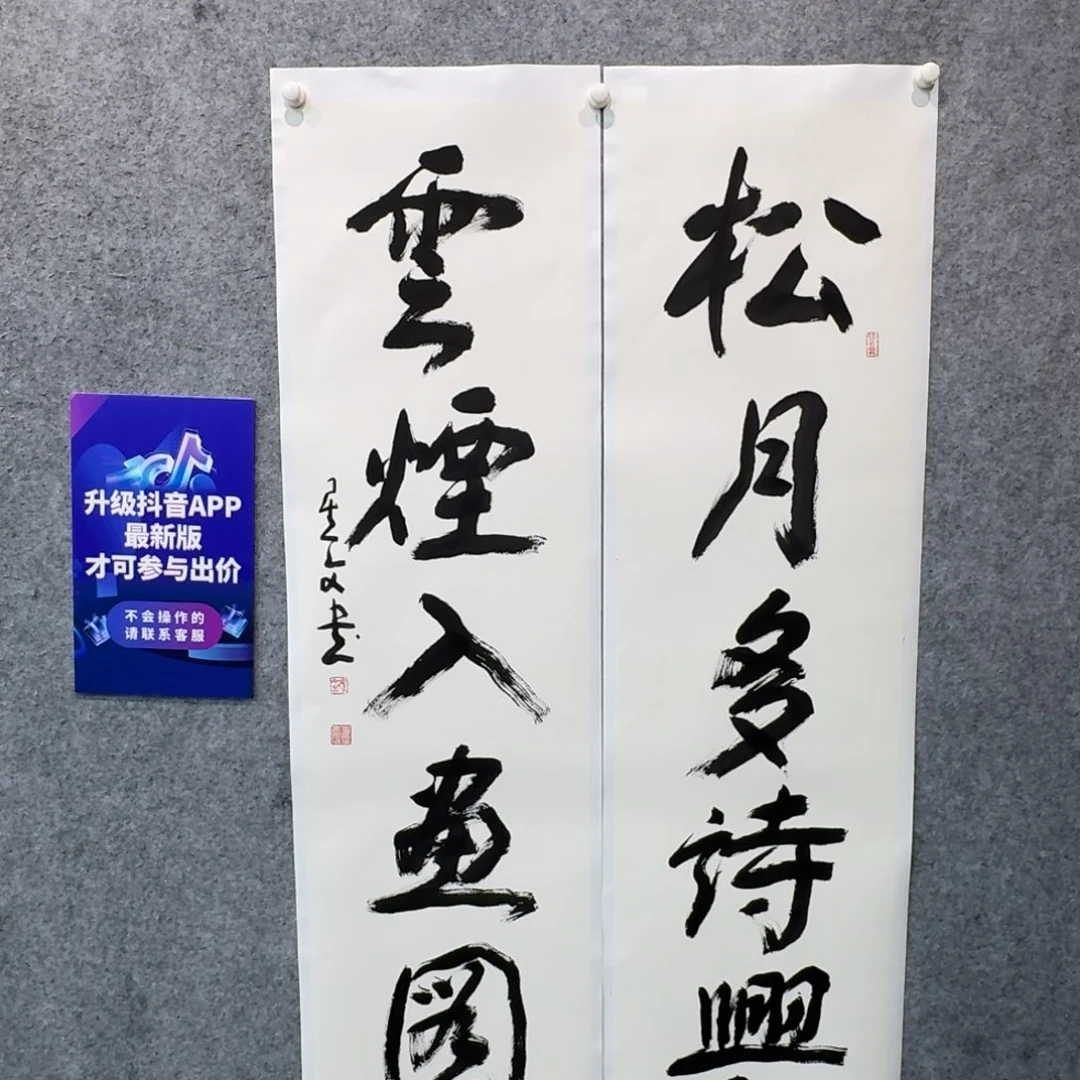 松月多詩興
雲煙入畫圖
升级抖音APP
最新版
才可参与出价
不会操作的
请联系客服